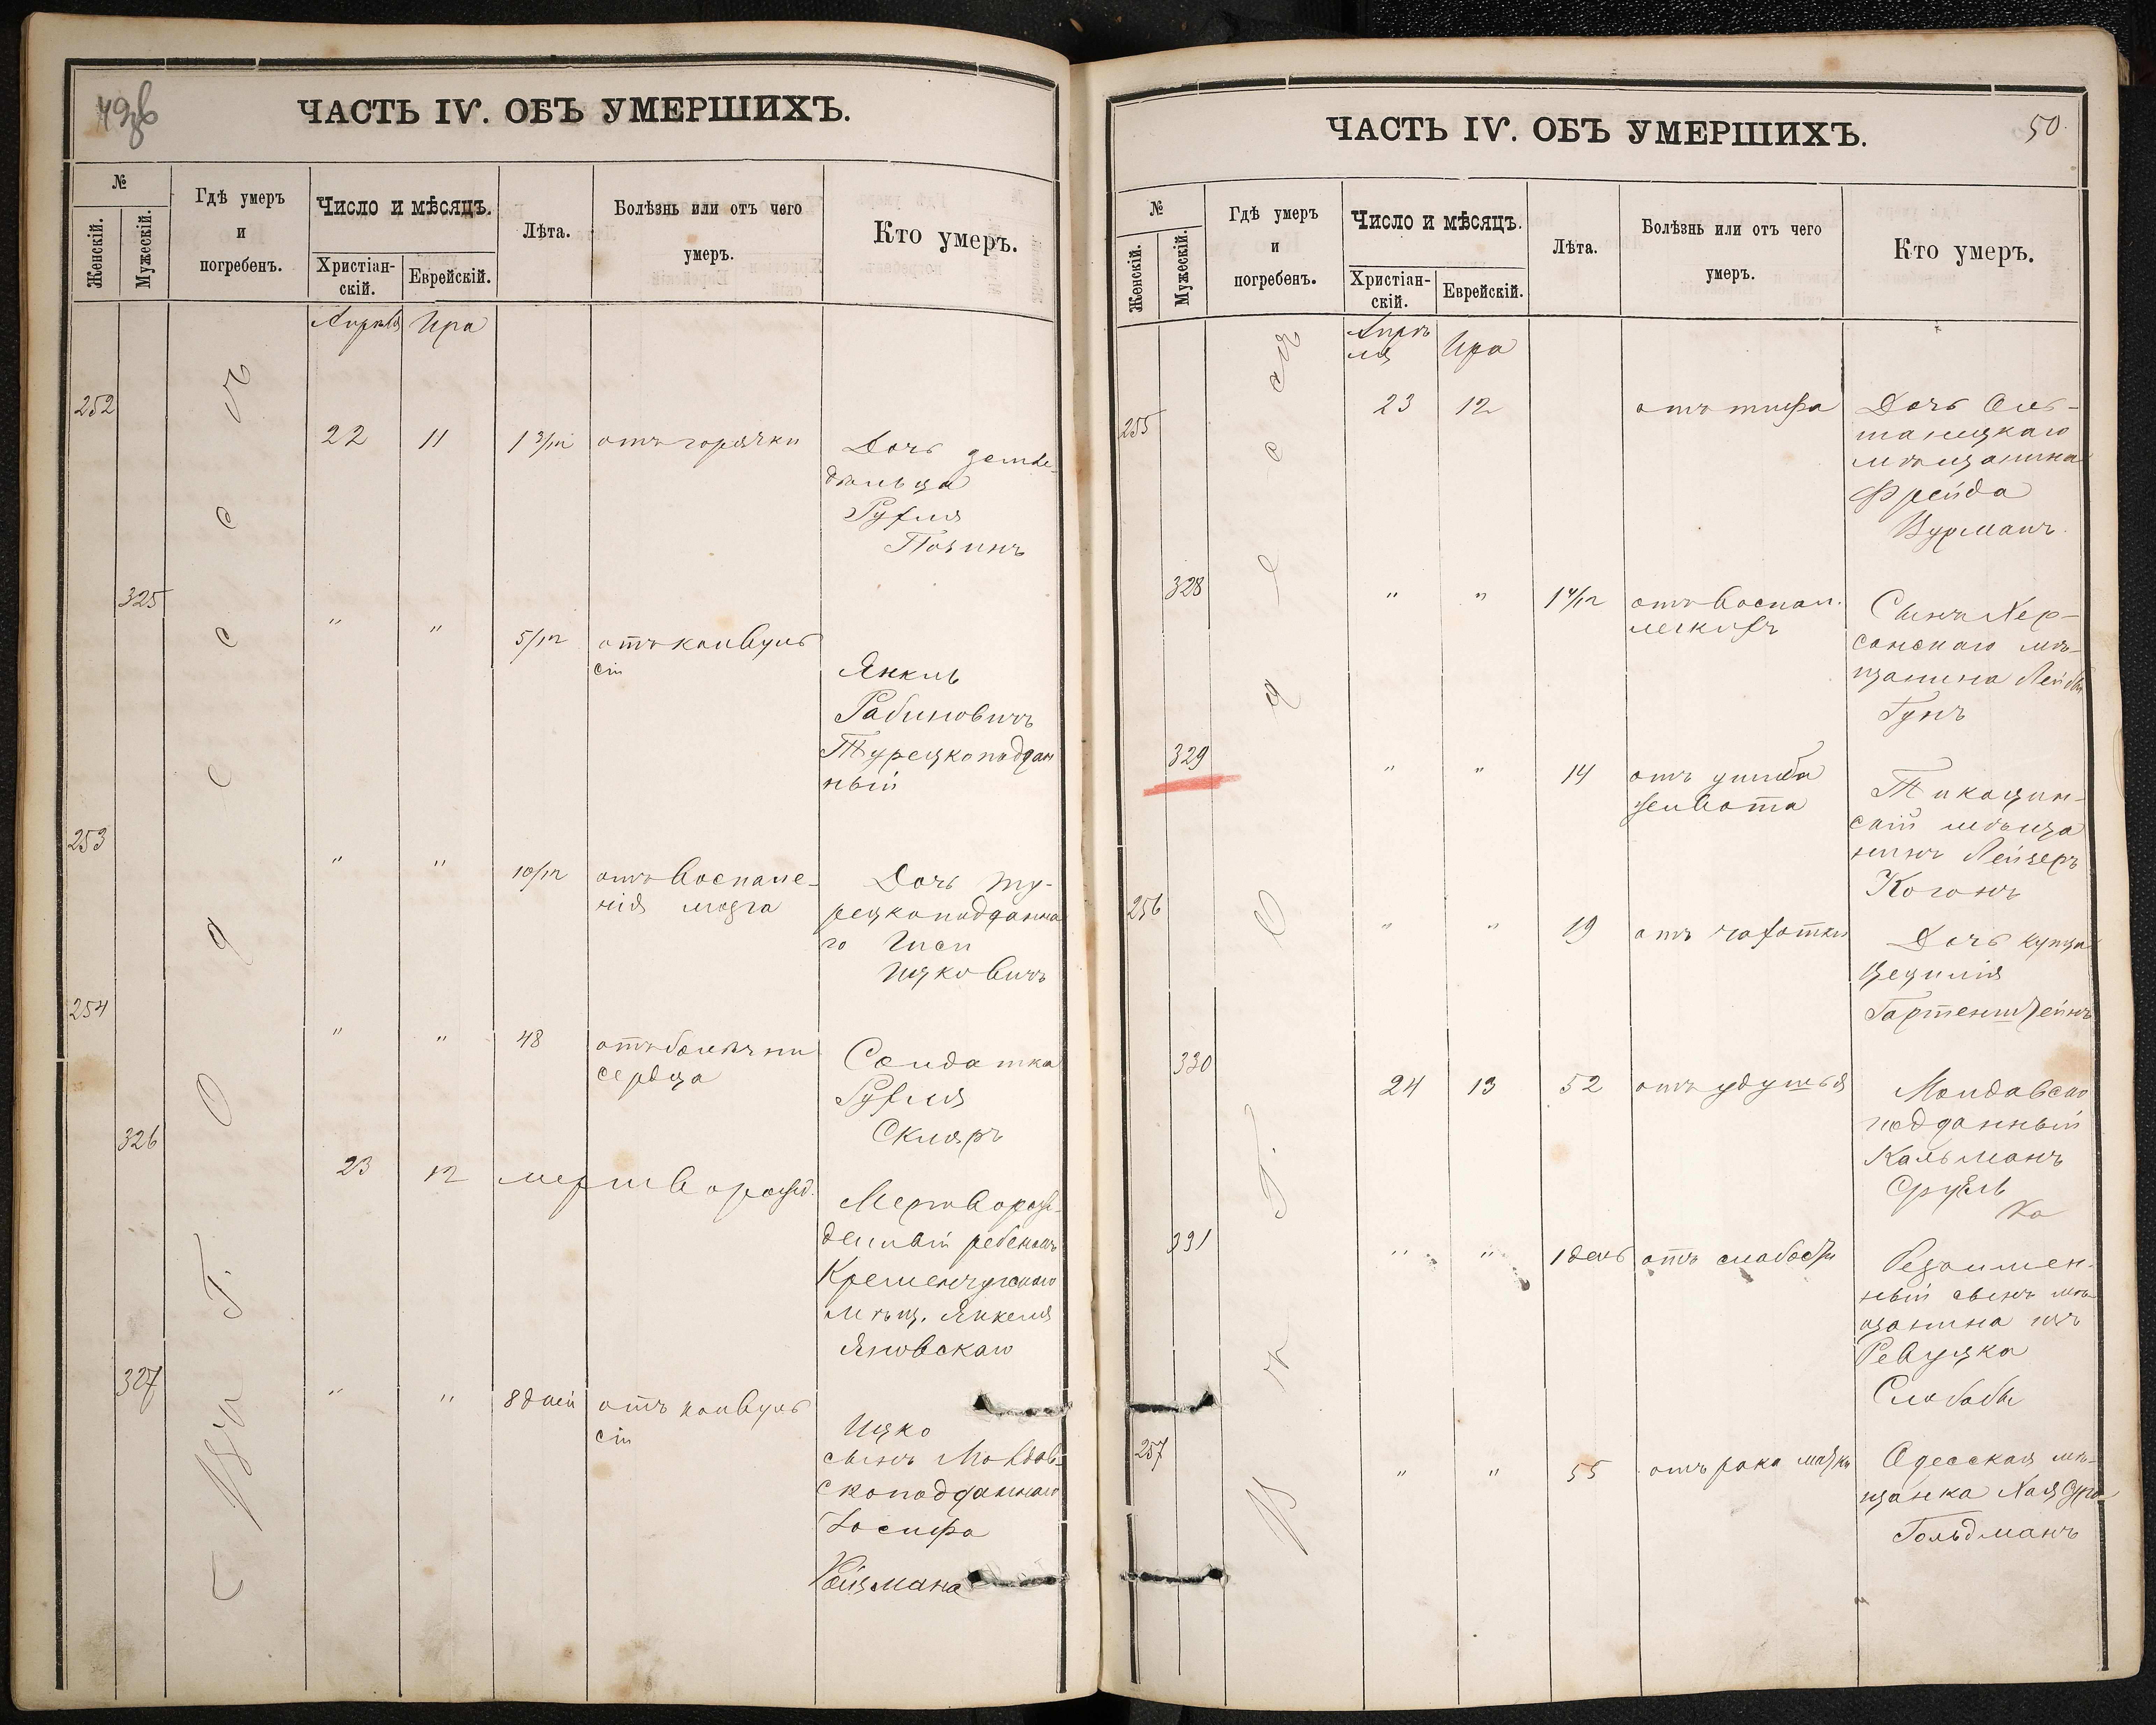 49об
ЧАСТЬ IV. ОБЪ УМЕРШИХЪ.
№
Женскій.
Мужескій.
Гдѣ умеръ
и
погребенъ.
Число и мѣсяцъ.
Христіан-
скій.
Еврейскій.
Лѣта.
Болѣзнь или отъ чего
умеръ.
Кто умеръ.
Апрѣля Ира
Въ Г. Одессѣ
252 22 11 1 3/12 отъ горячки
Дочь земле-
дѣльца
Рухля
325 " " 5/12 отъ конвуль
сіи
Янкль
Рабиновичъ
Турецкоподдан
ный
253 " " 10/12 отъ воспале-
нія мозга
Дочь ту-
рецкоподданна
го
Ицковичъ
254 " " 48 отъ болѣзни
сердца
Солдатка
Рухля
Скляръ
326 23 12 мертворожд.
Мертворож-
денный ребенокъ
Кременчугскаго
мѣщ. Янкеля
Яновскаго
327 " " 8 дней отъ конвуль
сіи
Ицко
сынъ Молдав-
скоподданнаго
Іосифа
50.
ЧАСТЬ IV. ОБЪ УМЕРШИХЪ.
№
Женскій.
Мужескій.
Гдѣ умеръ
и
погребенъ.
Число и мѣсяцъ.
Христіан-
скій.
Еврейскій.
Лѣта.
Болѣзнь или отъ чего
умеръ.
Кто умеръ.
Апрѣ
ля Ира
Въ Г. Одессѣ
255 23 12 отъ тифа
Дочь Оль-
шаницкаго
мѣщанина
Фрейда
Вурманъ
328 " " отъ воспал.
легкихъ
Сынъ Хер-
сонскаго мѣ-
щанина Лейбы
329 " " 14 отъ ушиба
живота
Тикоцин-
скій мѣща
нинъ Лейзеръ
Когонъ
256 " " 19 отъ чахотки
Дочь купца
Цецилія
Гартенштейнъ
330 24 13 52 отъ удушья
Молдавско
подданный
Кальманъ
Сруль
331 " " 1 день отъ слабости
Безъимен-
ный сынъ мѣ-
щанина изъ
Слободы
257 " " 55 отъ рака матки
Одесская мѣ-
щанка Хая Сура
Гольдманъ